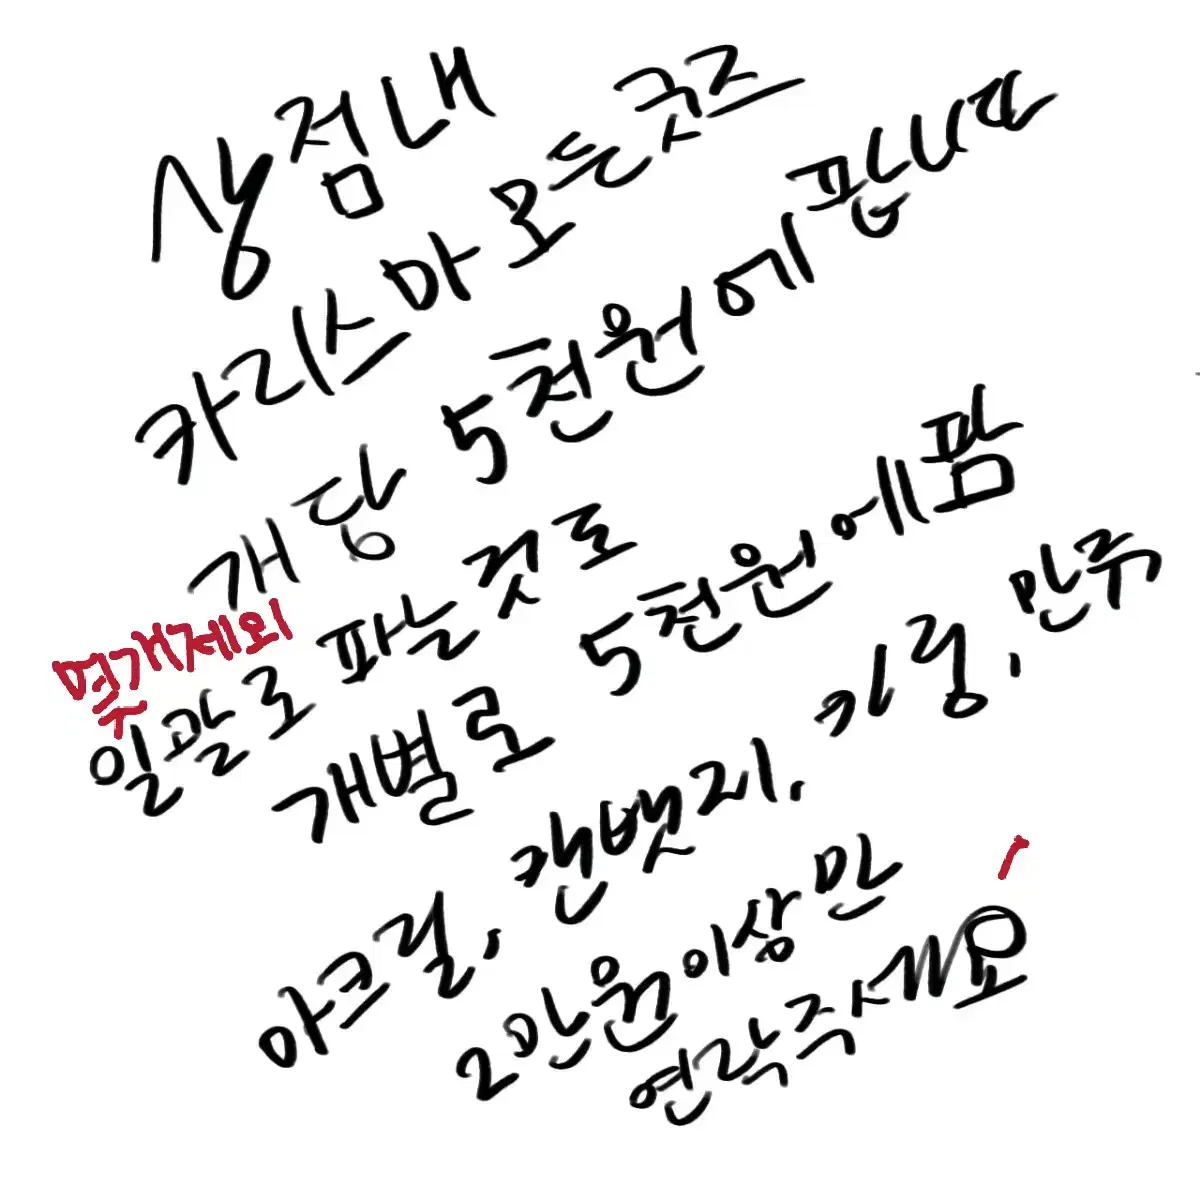 상점내
카리스마 모든 굿즈
개당 5천원에 팝니다
몇개제외
일괄로 파는것도
개별로 5천원에 팜
아크릴, 캔뱃지, 키링, 만쥬
2만원 이상만
연락주세요